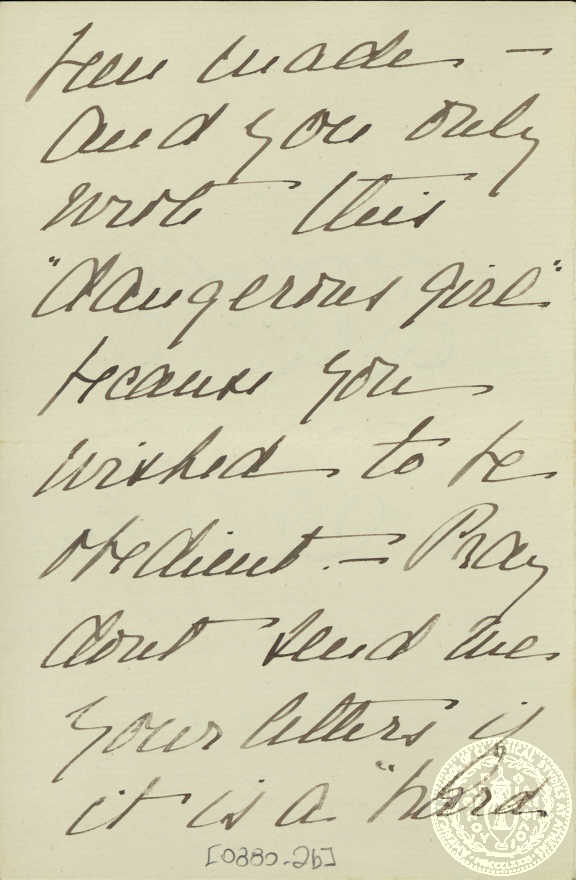 been made —
and you only
wrote this
"dangerous girl"
because you
wished to be
obedient. — Pray
dont send me
your letters if
it is a "hard
[0880-2b]